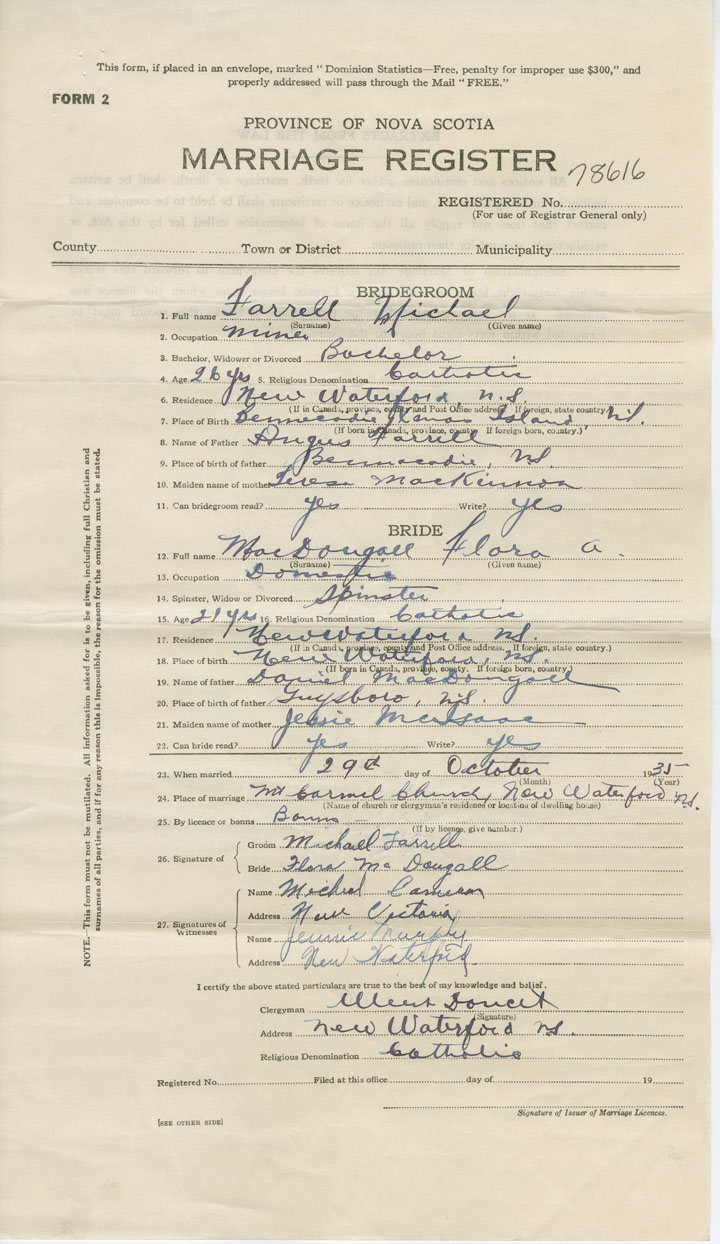 This form, if placed in an envelope, marked "Dominion Statistics—Free, penalty for improper use $300," and
properly addressed will pass through the Mail "FREE."
FORM 2
PROVINCE OF NOVA SCOTIA
MARRIAGE REGISTER
78616
REGISTERED No.
(For use of Registrar General only)
County Town or District Municipality
BRIDEGROOM
1. Full name Farrell Michael
(Surname) (Given name)
2. Occupation Miner
3. Bachelor, Widower or Divorced Bachelor
4. Age 26 yrs 5. Religious Denomination Catholic
6. Residence New Waterford, N.S.
(If in Canada, province, county and Post Office address. If foreign, state country.)
7. Place of Birth Island, N.S.
(If born in Canada, province, county. If foreign born, country.)
8. Name of Father Angus Farrell
9. Place of birth of father Bennacadie, NS.
10. Maiden name of mother Teresa MacKinnon
11. Can bridegroom read? yes Write? yes
BRIDE
12. Full name MacDougall Flora A.
(Surname) (Given name)
13. Occupation Domestic
14. Spinster, Widow or Divorced Spinster
15. Age 21 yrs 16. Religious Denomination Catholic
17. Residence New Waterford NS.
(If in Canada, province, county and Post Office address. If foreign, state country.)
18. Place of birth New Waterford, NS.
(If born in Canada, province, county. If foreign born, country.)
19. Name of father Daniel MacDougall
20. Place of birth of father Guysboro, N.S.
21. Maiden name of mother Jessie McIsaac
22. Can bride read? yes Write? yes
23. When married 29th day of October 1935
(Month) (Year)
24. Place of marriage Mt Carmel Church, New Waterford NS.
(Name of church or clergyman's residence or location of dwelling house)
25. By licence or banns Banns
(If by licence, give number.)
26. Signature of Groom Michael Farrell
Bride Flora McDougall
27. Signatures of Witnesses Name Michel Cameron
Address New Victoria
Name Jennie Murphy
Address New Waterford
I certify the above stated particulars are true to the best of my knowledge and belief.
Clergyman Doucet
(Signature)
Address New Waterford NS.
Religious Denomination Catholic
Registered No. Filed at this office day of 19
Signature of Issuer of Marriage Licences.
[SEE OTHER SIDE]
NOTE.—This form must not be mutilated. All information asked for is to be given, including full Christian and
surnames of all parties, and if for any reason this is impossible, the reason for the omission must be stated.